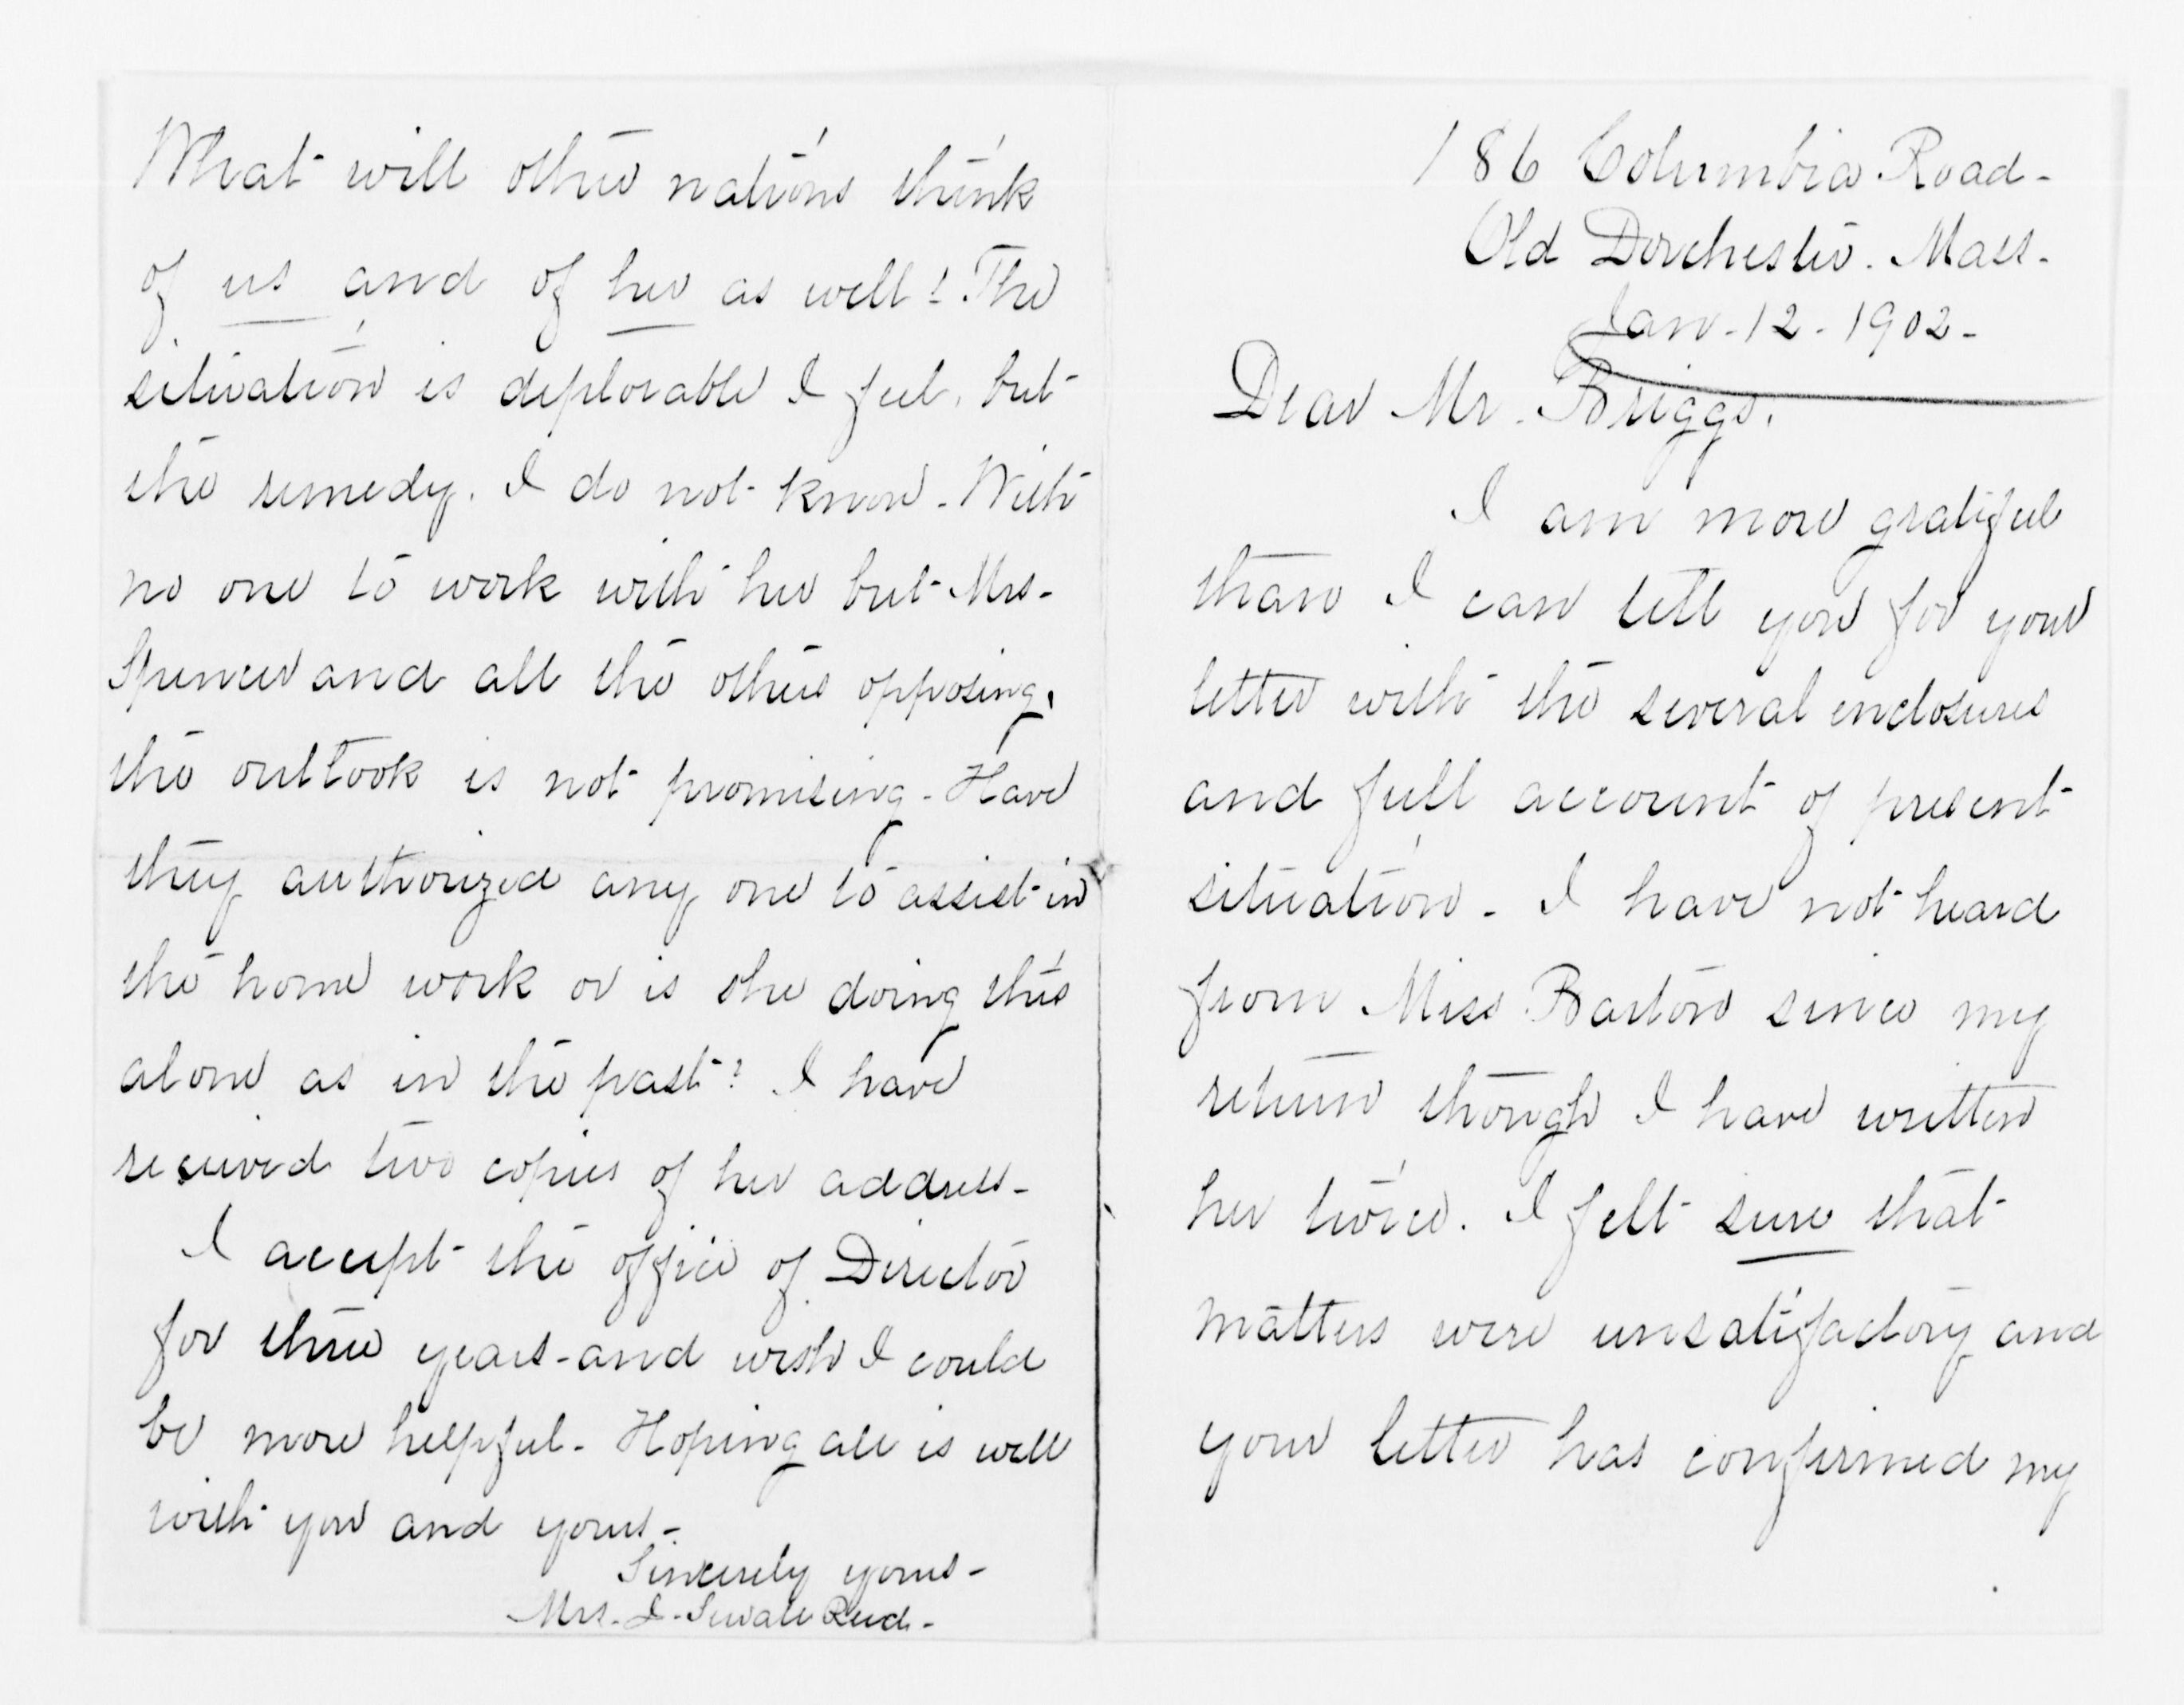 186 Columbia Road -
Old Dorchester. Mass.
Jan. 12. 1902 -
Dear Mr. Briggs.
I am more grateful
than I can tell you for your
letter with the several enclosures
and full account of present
situation. I have not heard
from Miss Barton since my
return though I have written
her twice. I felt sure that
matters were unsatisfactory and
your letter has confirmed my
What will other nations think
of us and of her as well! The
situation is deplorable I feel, but
the remedy. I do not know. With
no one to work with her but Mrs.
Spencer and all the others opposing,
the outlook is not promising. Have
they authorized any one to assist in
the home work or is she doing this
alone as in the past? I have
received two copies of her address -
I accept the office of Director
for three years - and wish I could
be more helpful - Hoping all is well
with you and yours -
Sincerely yours -
Mrs. J. Sewall Reed -